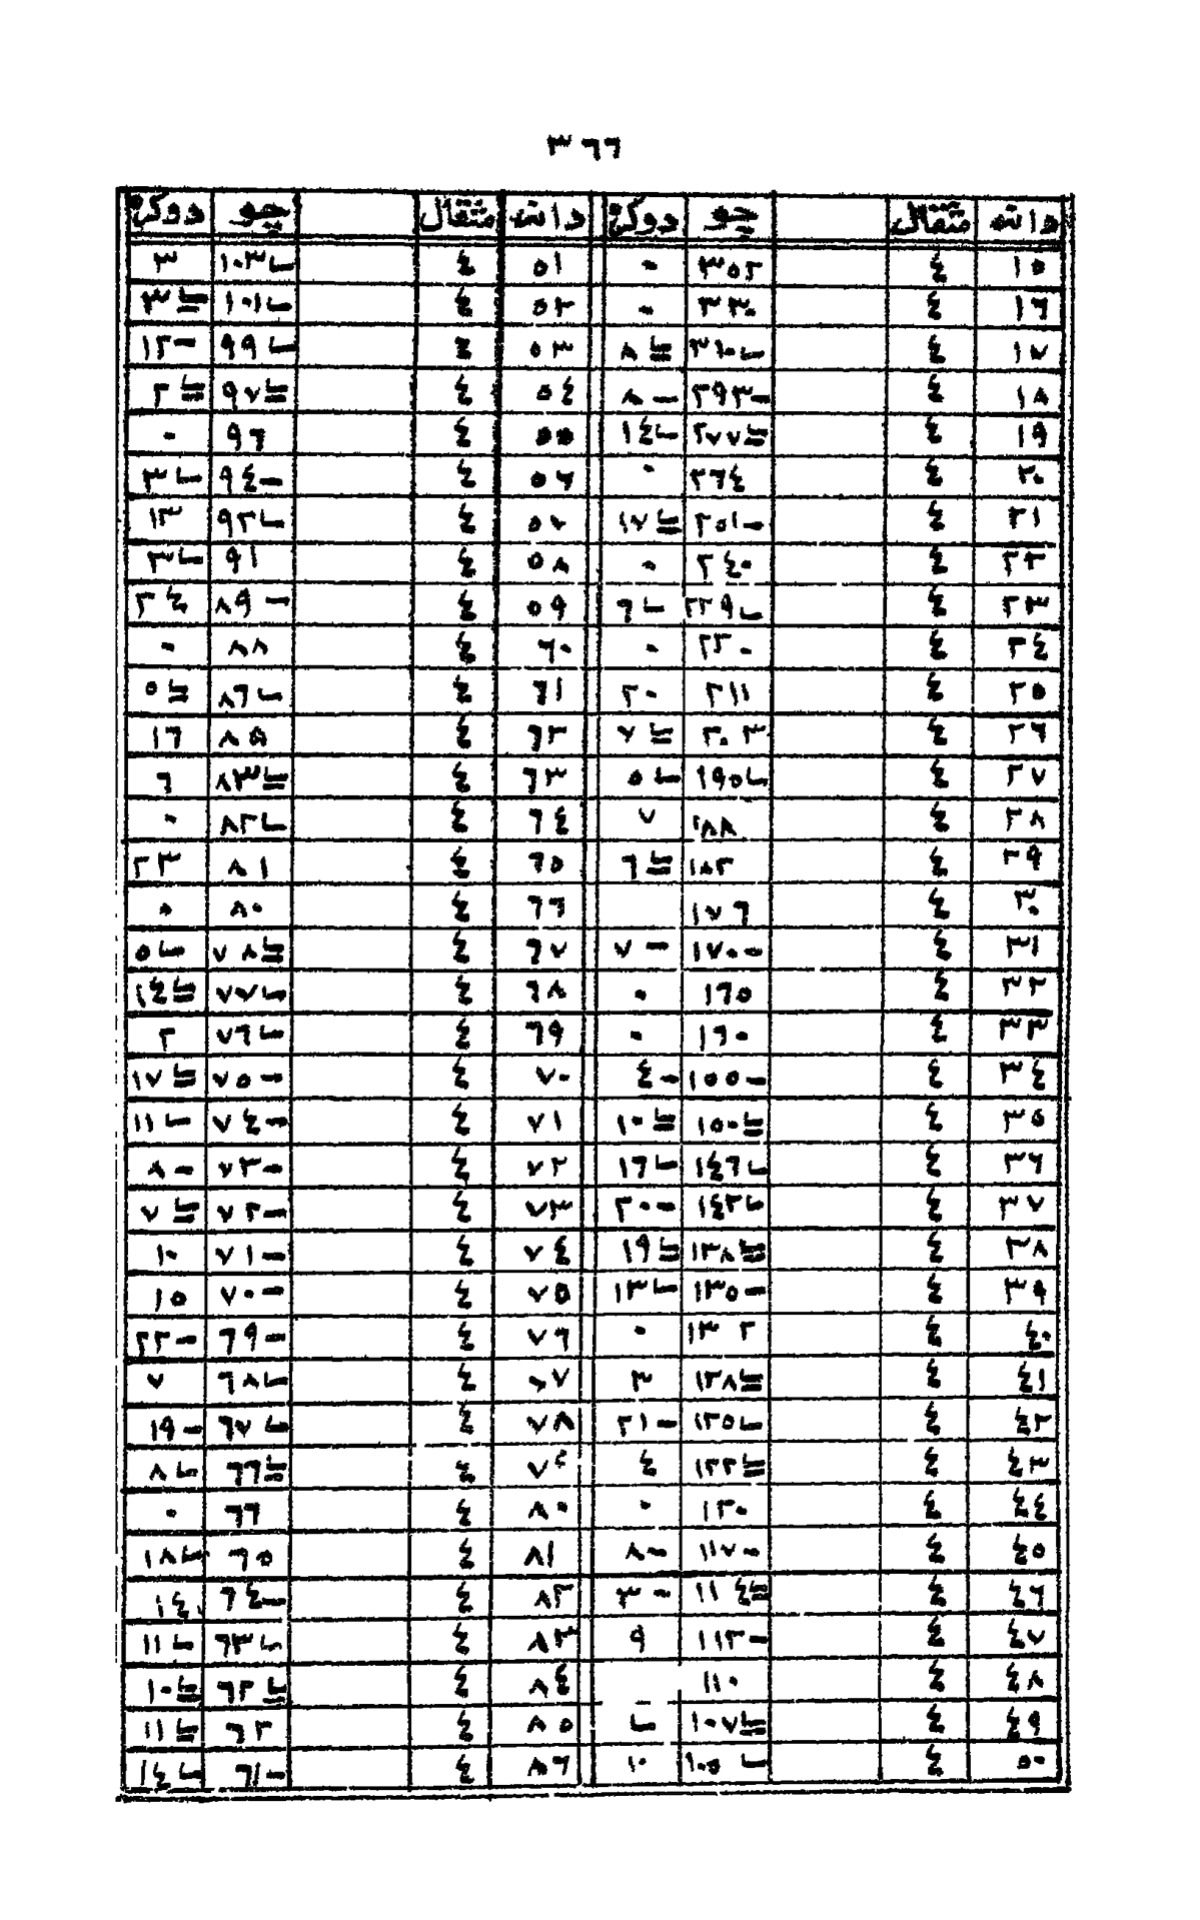 ٣٦٦
دانہ مثقال چو دوکڑہ دانہ مثقال چو دوکڑہ
١٥ ٤ ٣٥٢ ٠ ٥١ ٤ ١٠٣ ٣
١٦ ٤ ٣٣٠ ٠ ٥٢ ٤ ١٠١ ٣
١٧ ٤ ٣١٠ ٨ ٥٣ ٤ ٩٩ ١٢-
١٨ ٤ ٢٩٣- ٨- ٥٤ ٤ ٩٧ ٢
١٩ ٤ ٢٧٧ ١٤ ٥٥ ٤ ٩٦ ٠
٢٠ ٤ ٢٦٤ ٠ ٥٦ ٤ ٩٤- ٣
٢١ ٤ ٢٥١- ١٧ ٥٧ ٤ ٩٢ ١٣
٢٢ ٤ ٢٤٠ ٠ ٥٨ ٤ ٩١ ٣
٢٣ ٤ ٢٢٩ ٦ ٥٩ ٤ ٨٩-
٢٤ ٤ ٢٢٠ ٠ ٦٠ ٤ ٨٨ ٠
٢٥ ٤ ٢١١ ٢٠ ٦١ ٤ ٨٦ ٥
٢٦ ٤ ٢٠٣ ٧ ٦٢ ٤ ٨٥ ١٦
٢٧ ٤ ١٩٥ ٥ ٦٣ ٤ ٨٣ ٦
٢٨ ٤ ١٨٨ ٧ ٦٤ ٤ ٨٢ ٠
٢٩ ٤ ١٨٢ ٦ ٦٥ ٤ ٨١ ٢٣
٣٠ ٤ ١٧٦ ٦٦ ٤ ٨٠ ٠
٣١ ٤ ١٧٠- ٧- ٦٧ ٤ ٧٨ ٥
٣٢ ٤ ١٦٥ ٠ ٦٨ ٤ ٧٧ ١٤
٣٣ ٤ ١٦٠ ٠ ٦٩ ٤ ٧٦ ٢
٣٤ ٤ ١٥٥- ٤- ٧٠ ٤ ٧٥- ١٧
٣٥ ٤ ١٥٠ ١٠ ٧١ ٤ ٧٤- ١١
٣٦ ٤ ١٤٦ ١٦ ٧٢ ٤ ٧٣- ٨-
٣٧ ٤ ١٤٢ ٢٠- ٧٣ ٤ ٧٢- ٧
٣٨ ٤ ١٣٨ ١٩ ٧٤ ٤ ٧١- ١٠
٣٩ ٤ ١٣٥- ١٣ ٧٥ ٤ ٧٠- ١٥
٤٠ ٤ ١٣٢ ٠ ٧٦ ٤ ٦٩- ٢٢-
٤١ ٤ ١٢٨ ٣ ٧٧ ٤ ٦٨ ٧
٤٢ ٤ ١٢٥ ٢١- ٧٨ ٤ ٦٧ ١٩-
٤٣ ٤ ١٢٢ ٤ ٤ ٦٦ ٨
٤٤ ٤ ١٢٠ ٠ ٨٠ ٤ ٦٦ ٠
٤٥ ٤ ١١٧- ٨- ٨١ ٤ ٦٥ ١٨
٤٦ ٤ ١١٤ ٣- ٨٢ ٤ ٦٤- ١٤
٤٧ ٤ ١١٢- ٩ ٨٣ ٤ ٦٣ ١١
٤٨ ٤ ١١٠ ٨٤ ٤ ٦٢ ١٠
٤٩ ٤ ١٠٧ ٨٥ ٤ ٦٢ ١١
٥٠ ٤ ١٠٥ ١٠ ٨٦ ٤ ٦١- ١٤